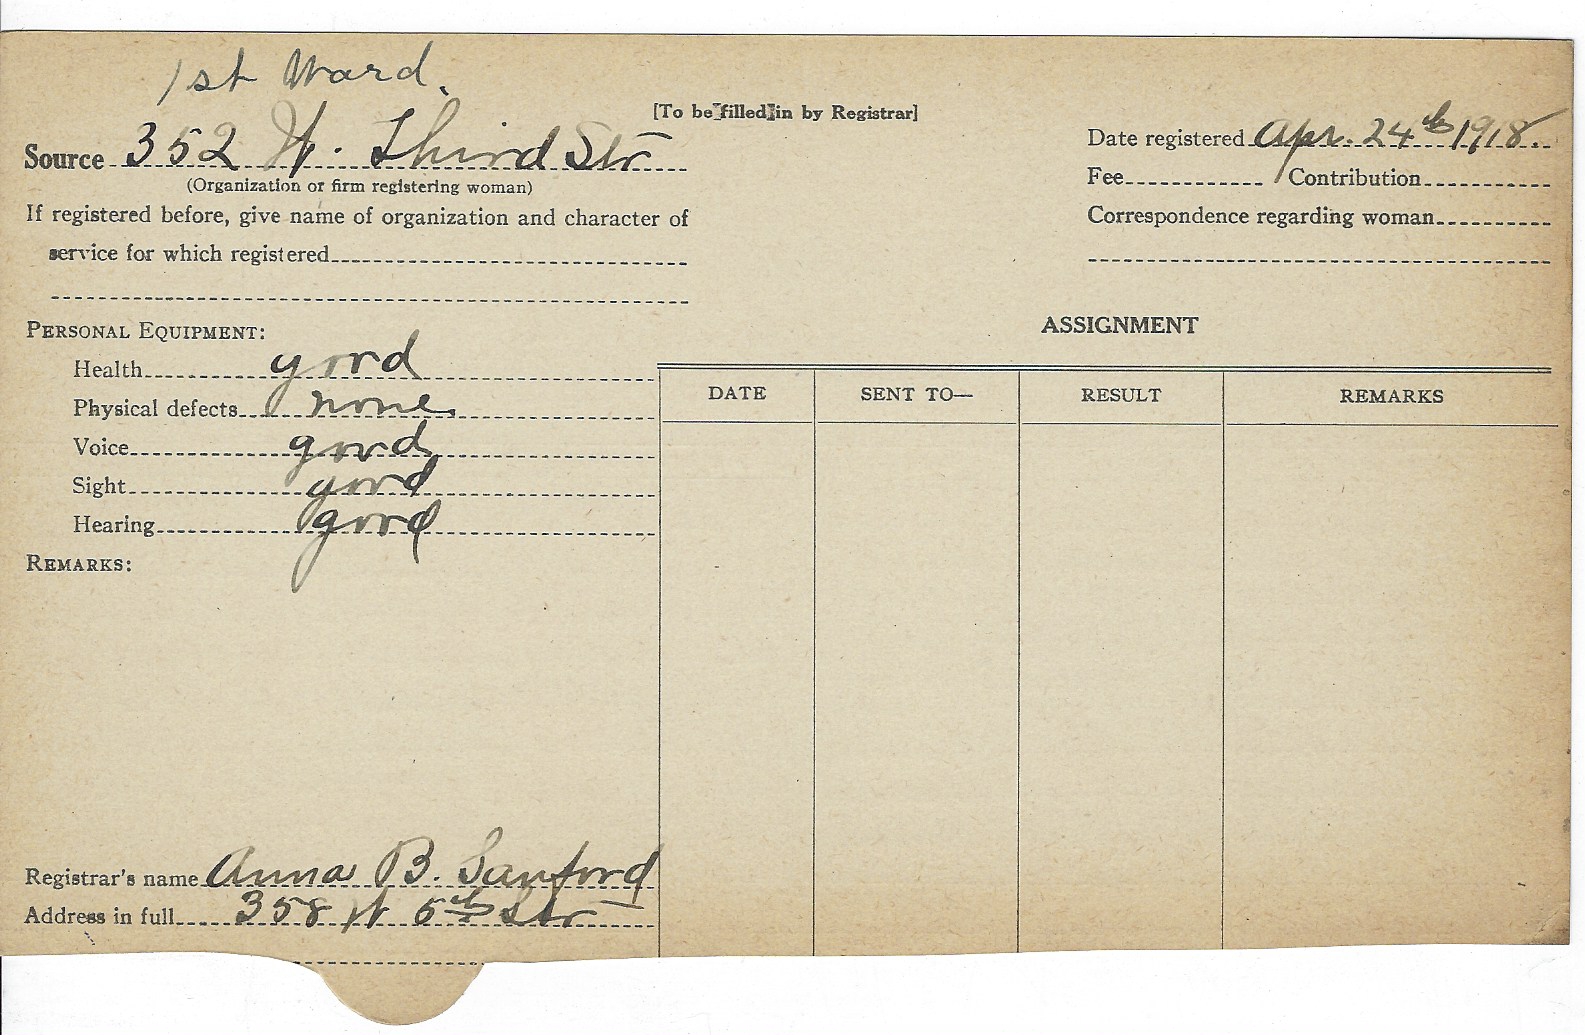 1st Ward.
[To be filled in by Registrar]
Source 352 W. Third Str
(Organization or firm registering woman)
If registered before, give name of organization and character of
service for which registered
Date registered Apr. 24th 1918.
Fee Contribution
Correspondence regarding woman
PERSONAL EQUIPMENT:
Health good
Physical defects none
Voice good
Sight good
Hearing good
REMARKS:
ASSIGNMENT
DATE SENT TO— RESULT REMARKS
Registrar's name Anna B. Sanford
Address in full 358 W 5th Str